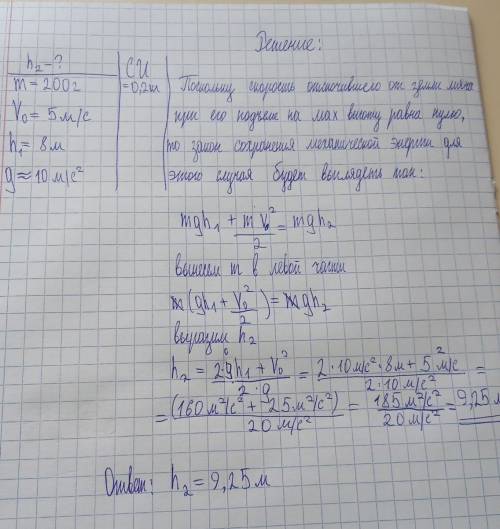 Решение:
h₂ - ?
m = 200г
V₀ = 5 м/с
h₁ = 8м
g ≈ 10 м/с²
СИ
= 0,2кг
Поскольку скорость отскочившего от земли мяча
при его подъеме на мах высоту равна нулю,
то закон сохранения механической энергии для
этого случая будет выглядеть так:
mgh₁ + mV₀²/2 = mgh₂
вынесем m в левой части
m(gh₁ + V₀²/2) = mgh₂
выразим h₂
h₂ = (2·gh₁ + V₀²)/(2·g) = (2·10м/с²·8м + 5²м/с)/(2·10м/с²) =
= (160м²/с² + 25м²/с²)/(20м/с²) = 185м²/с²/20м/с² = 9,25м
Ответ: h₂ = 9,25м